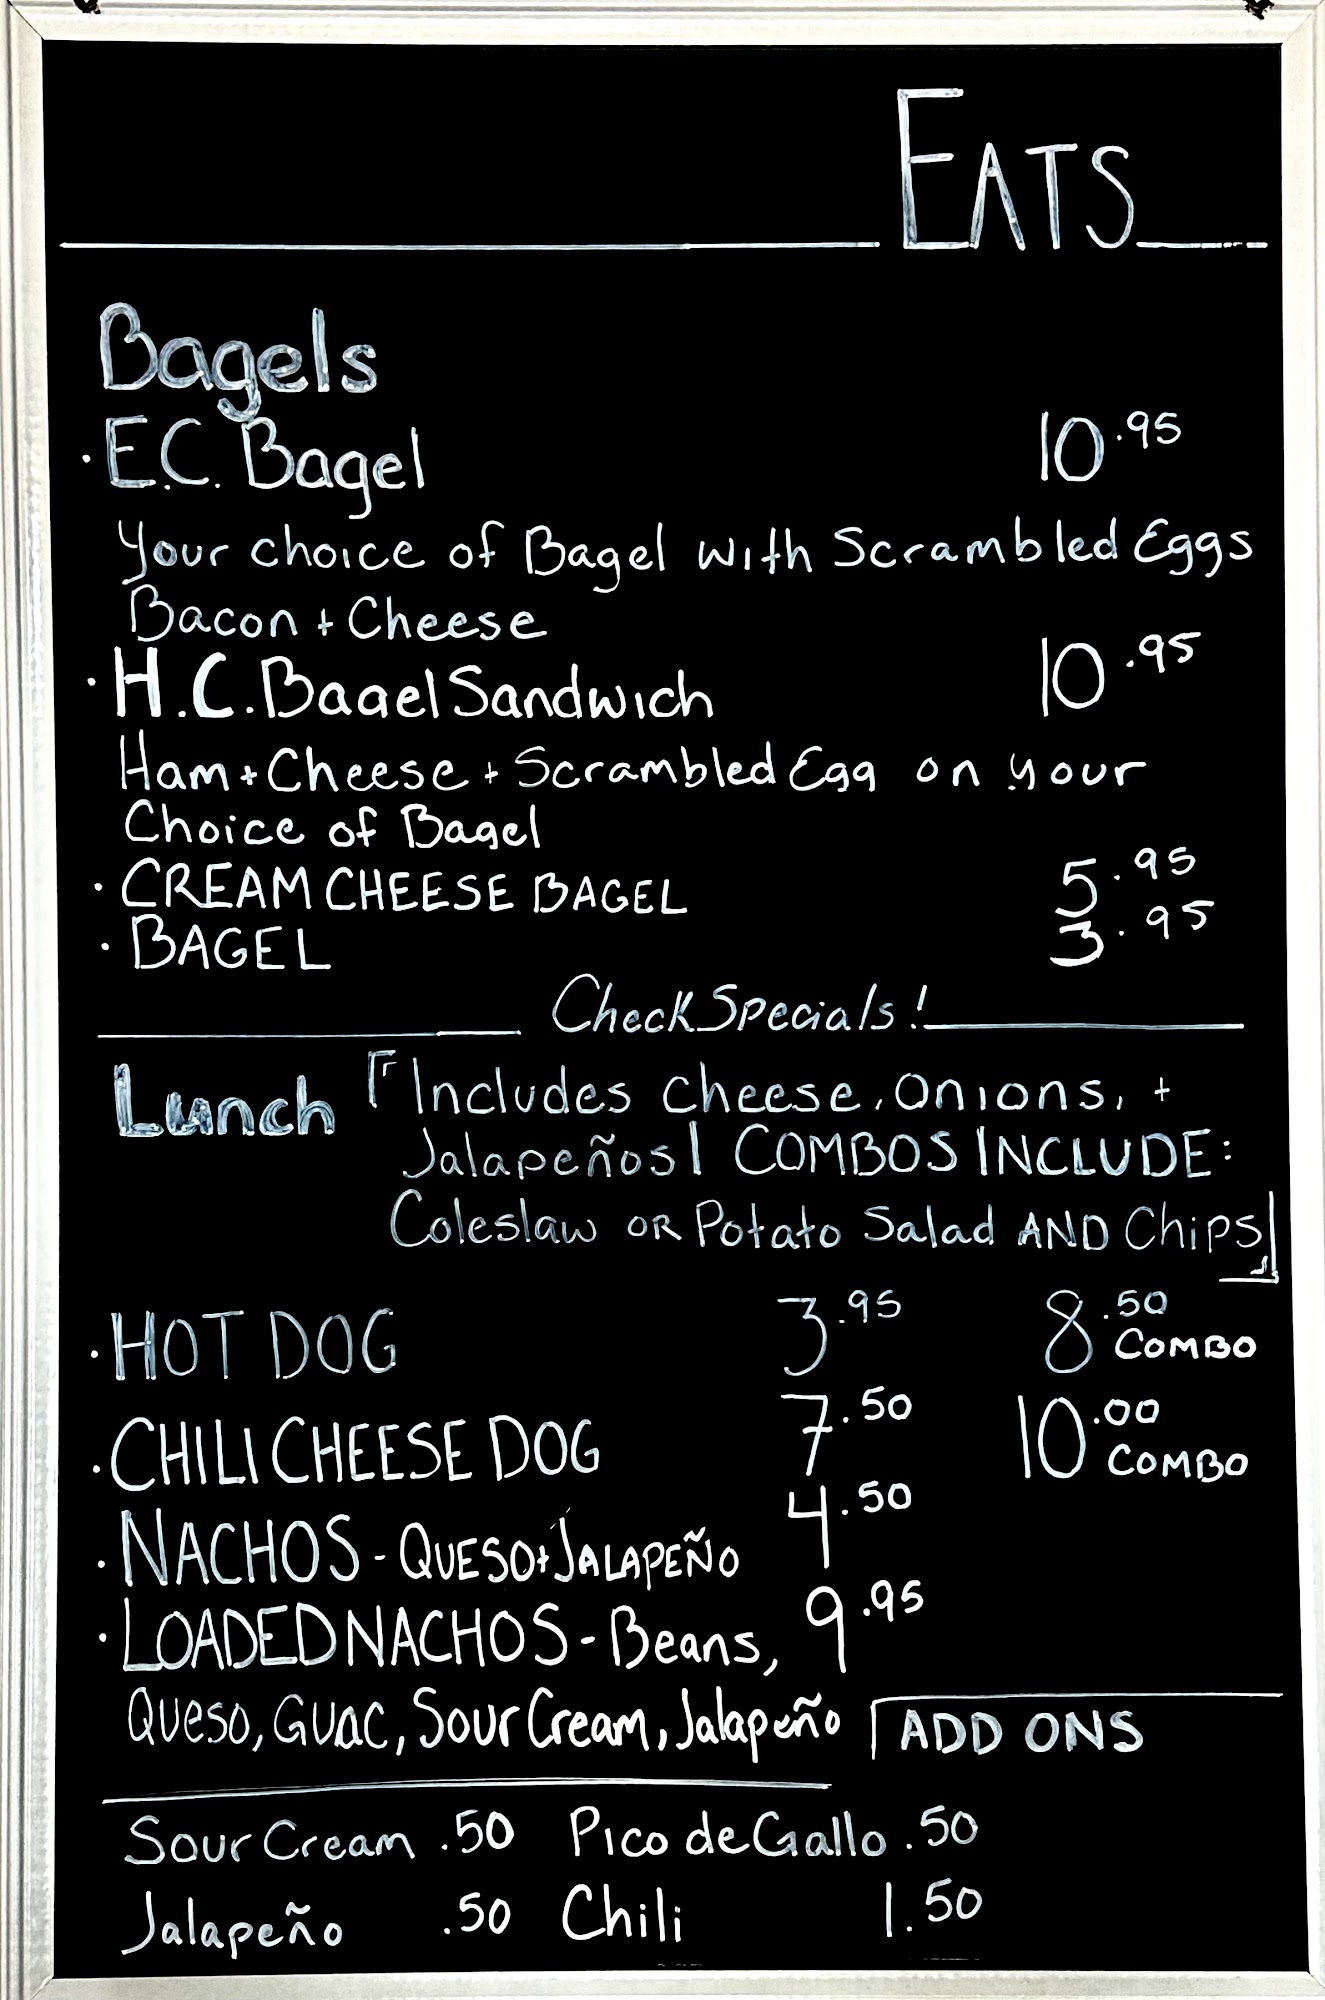 EATS
Bagels
· E.C. Bagel 10.95
Your choice of Bagel with Scrambled Eggs
Bacon + Cheese
· H.C. Bagel Sandwich 10.95
Ham + Cheese + Scrambled Egg on your
Choice of Bagel
· CREAM CHEESE BAGEL 5.95
· BAGEL 3.95
Check Specials!
Lunch [Includes Cheese, Onions, +
Jalapeños| COMBOS INCLUDE:
Coleslaw OR Potato Salad AND Chips]
· HOT DOG 3.95 8.50 COMBO
· CHILI CHEESE DOG 7.50 10.00 COMBO
· NACHOS - QUESO + JALAPEÑO 4.50
· LOADED NACHOS - Beans, 9.95
Queso, Guac, Sour Cream, Jalapeño
ADD ONS
Sour Cream .50 Pico de Gallo .50
Jalapeño .50 Chili 1.50